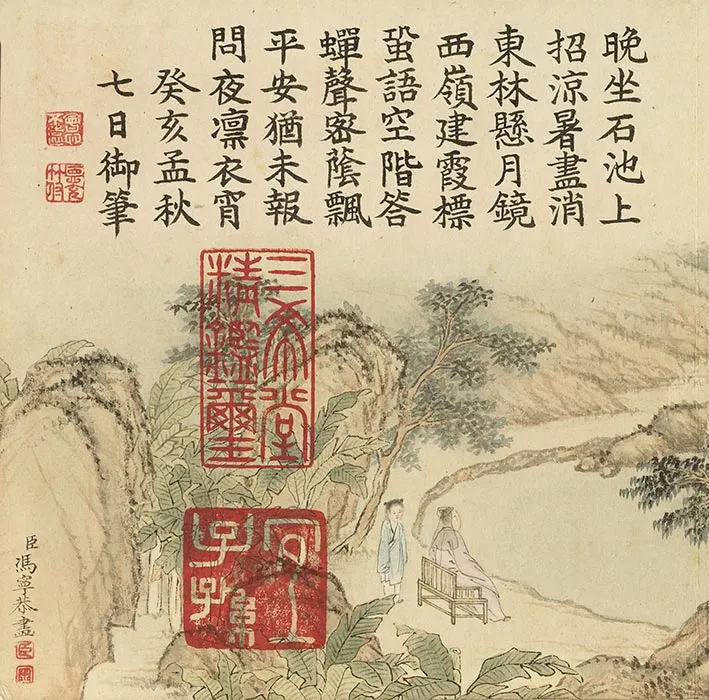 晚坐石池上
招涼暑盡消
東林懸月鏡
西嶺建霞標
蛩語空階答
蟬聲密蔭飄
平安猶未報
問夜凜衣宵
癸亥孟秋
七日御筆
三希堂
精鑑璽
宜子孫
臣馮寧恭畫